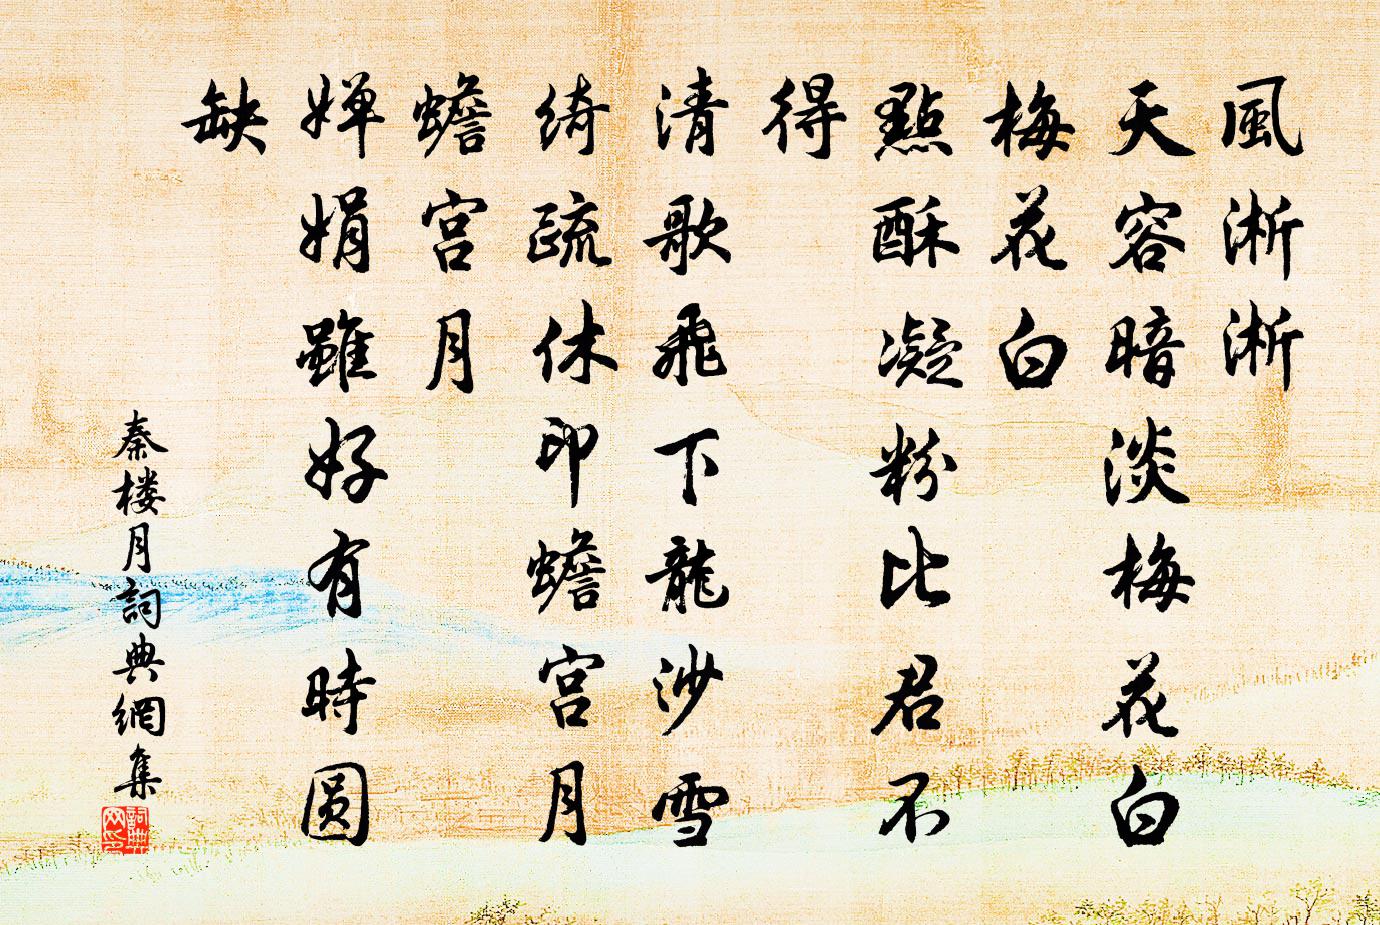 風淅淅
天容暗淡梅花白
梅花白
點酥凝粉比君不
得
清歌飛下龍沙雪
綺疏休印蟾宮月
蟾宮月
嬋娟雖好有時圓
缺
秦楼月詞典網集